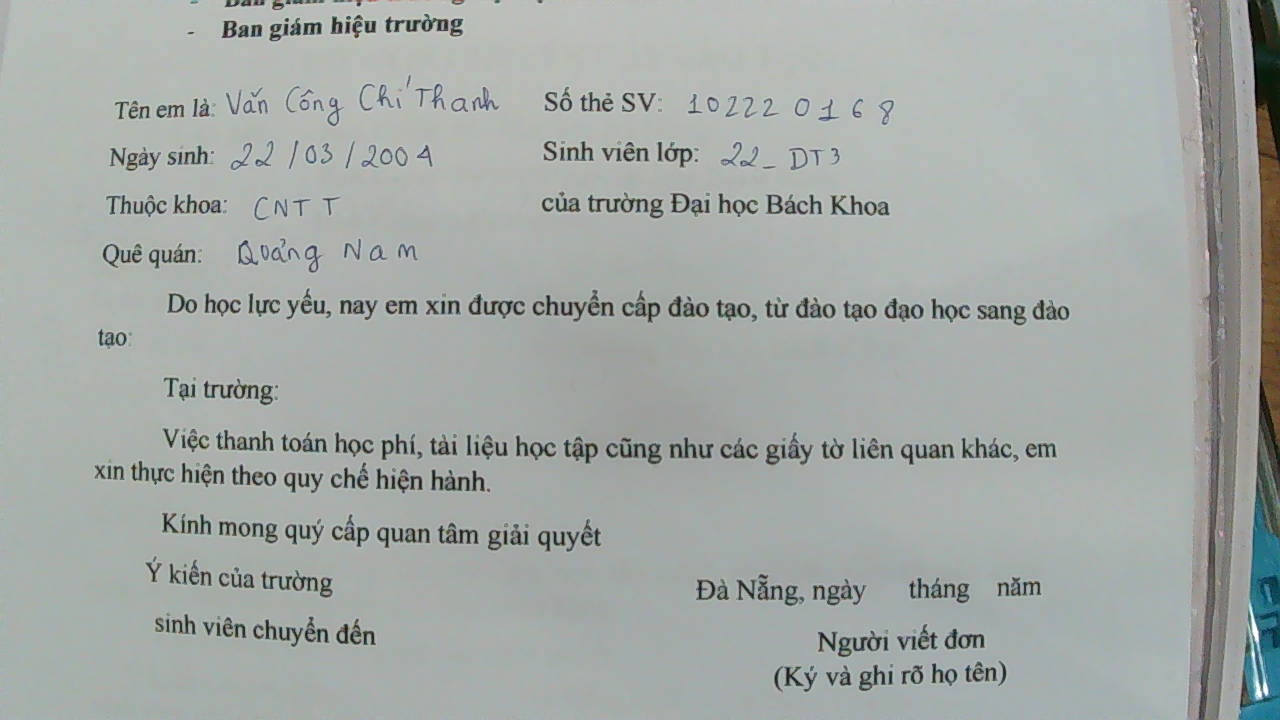 - Ban giám hiệu trường
Tên em là: Văn Công Chí Thanh Số thẻ SV: 102220168
Ngày sinh: 22/03/2004 Sinh viên lớp: 22_DT3
Thuộc khoa: CNTT của trường Đại học Bách Khoa
Quê quán: Quảng Nam
Do học lực yếu, nay em xin được chuyển cấp đào tạo, từ đào tạo đạo học sang đào
tạo:
Tại trường:
Việc thanh toán học phí, tài liệu học tập cũng như các giấy tờ liên quan khác, em
xin thực hiện theo quy chế hiện hành.
Kính mong quý cấp quan tâm giải quyết
Ý kiến của trường
sinh viên chuyển đến
Đà Nẵng, ngày tháng năm
Người viết đơn
(Ký và ghi rõ họ tên)